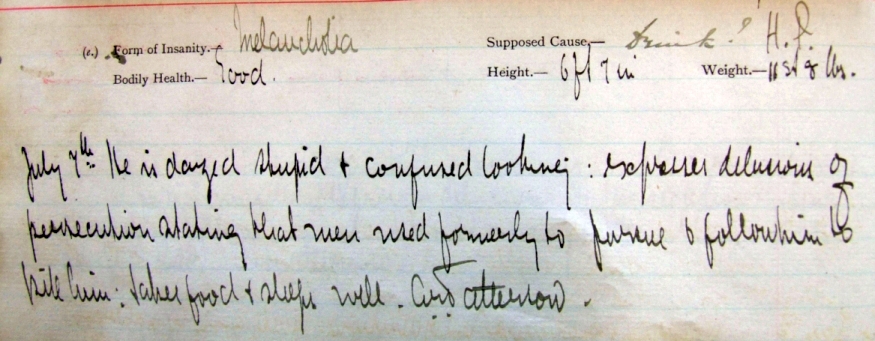 (c.) Form of Insanity.— Melancholia Supposed Cause,— Drink? H.P.
Bodily Health.— Good. Height.— 6ft 7in Weight.— 11 st 8 lbs.
July 7th He is dazed stupid & confused looking: expresses delusions of
persecution stating that men used formerly to pursue & follow him to
kill him: takes food & sleeps well.